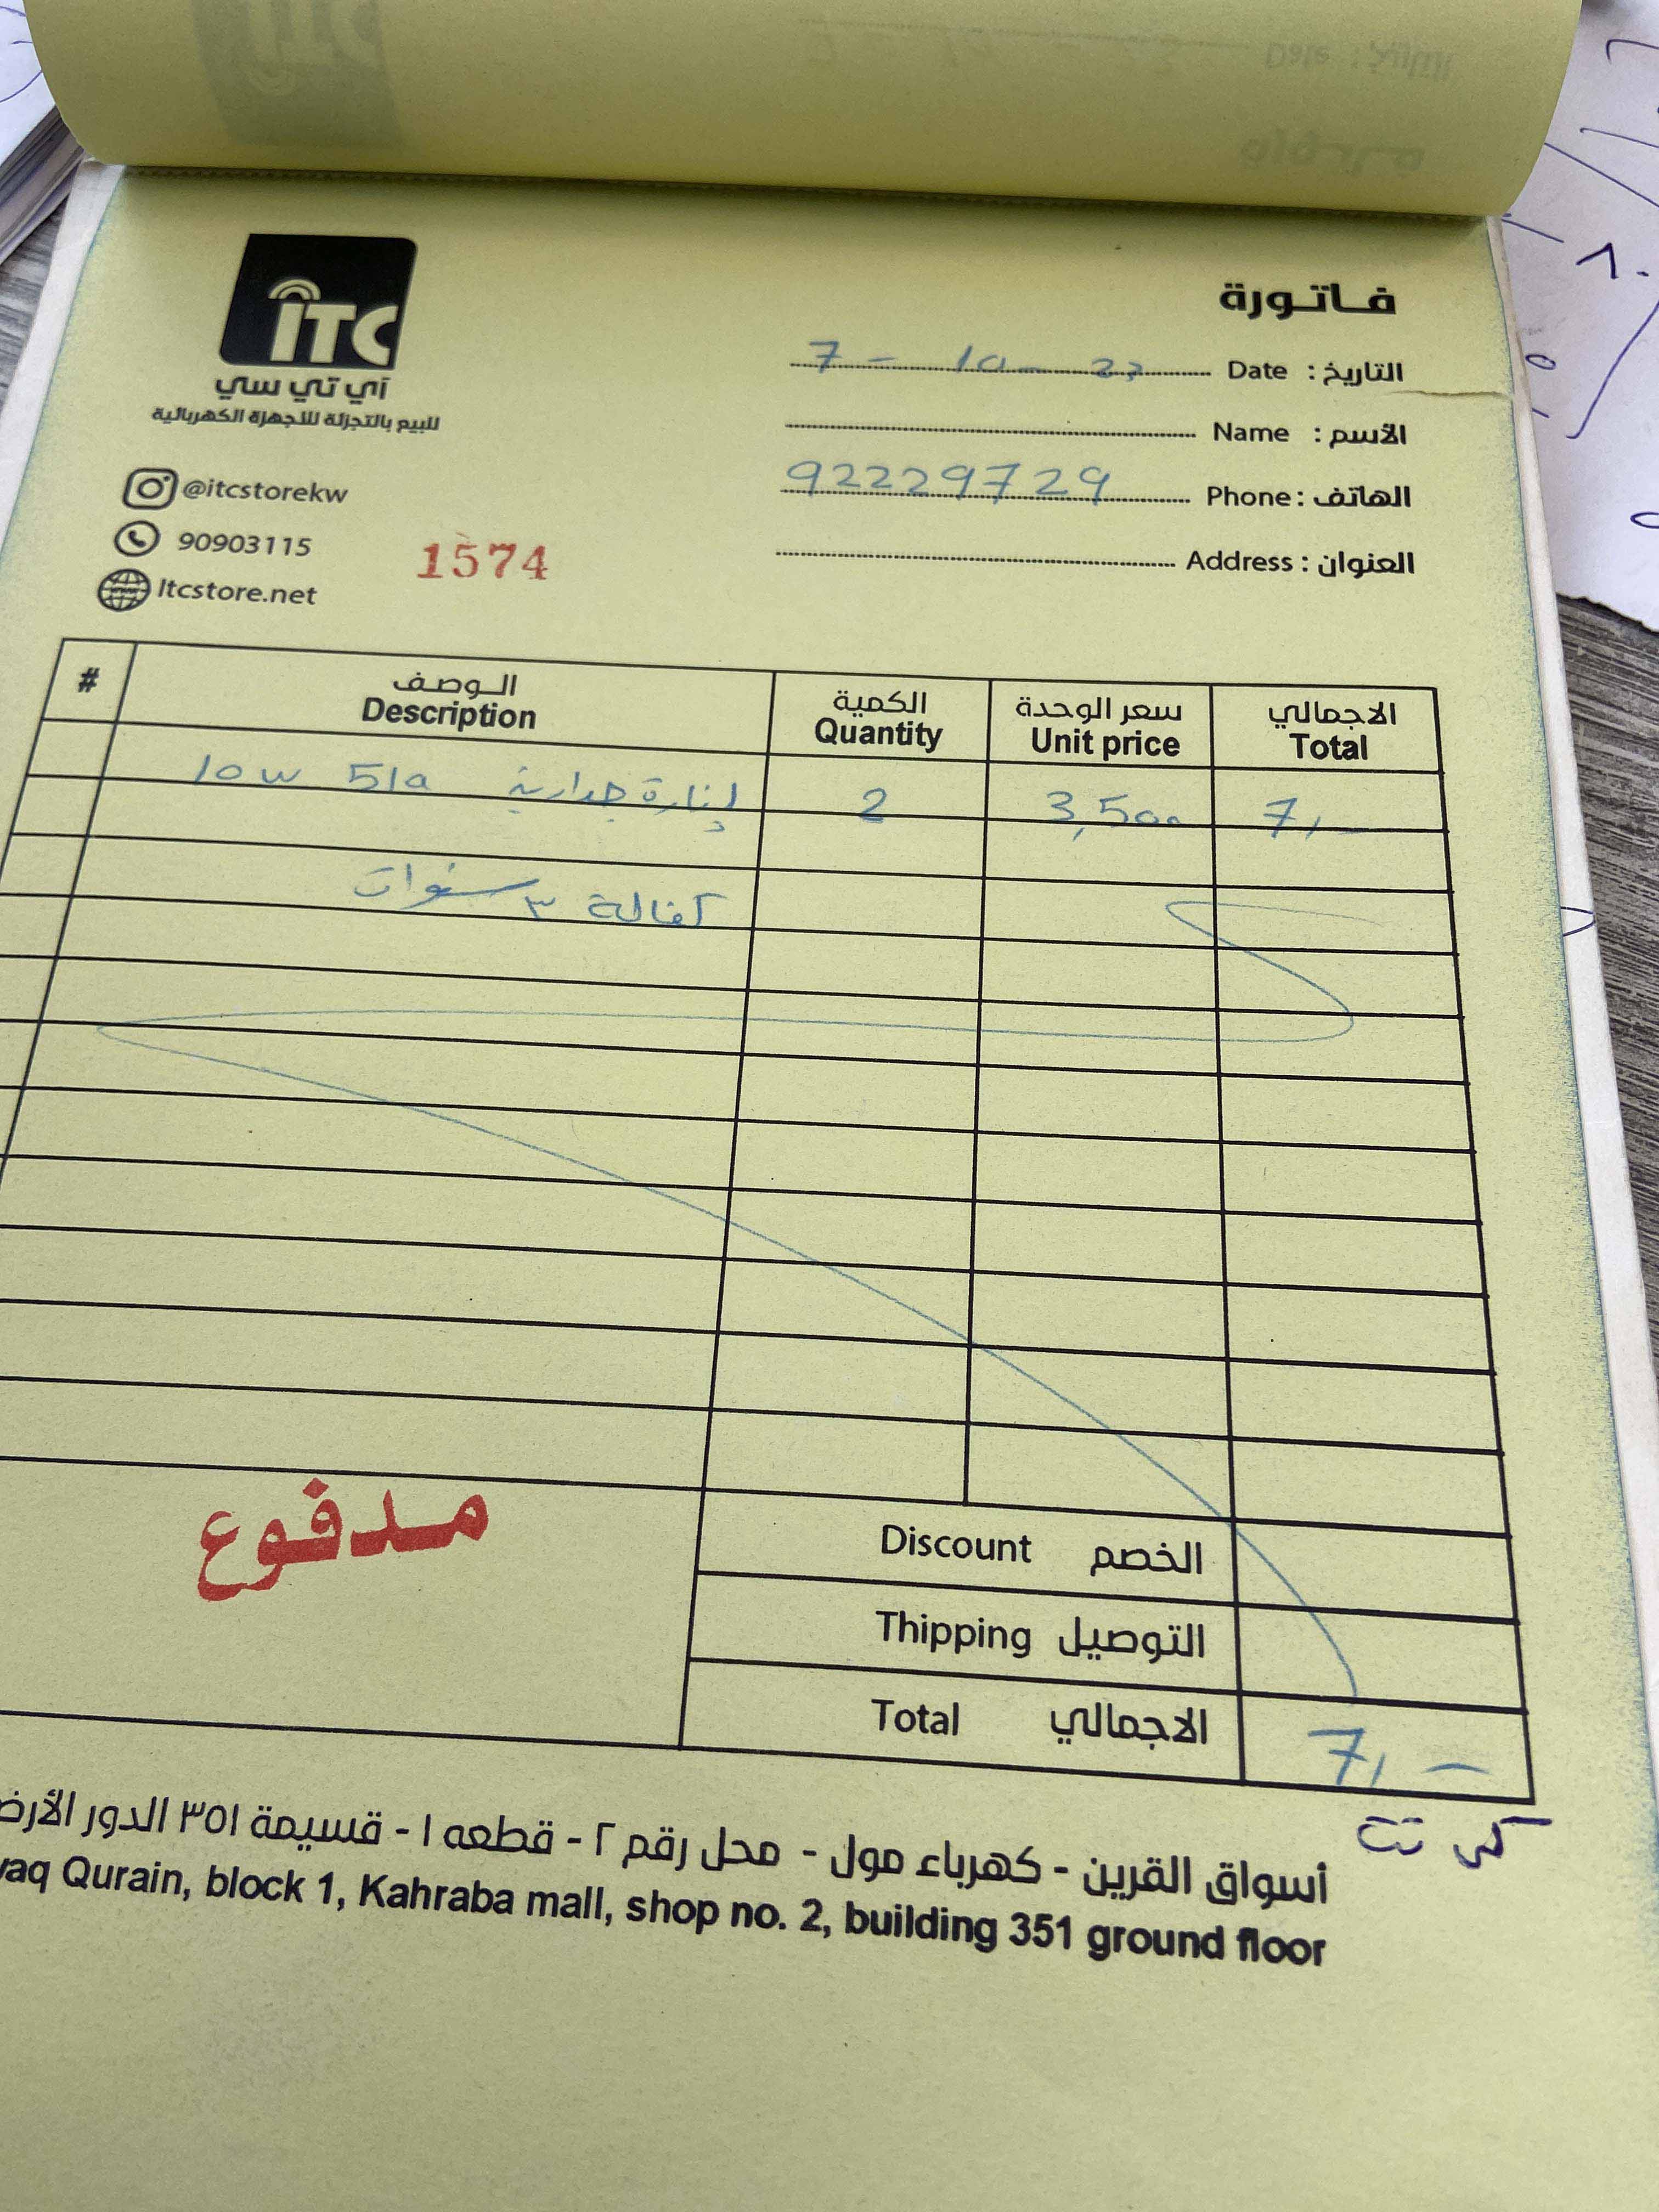 ITC
آي تي سي
للبيع بالتجزئة للأجهزة الكهربائية
@itcstorekw
90903115
Itcstore.net
1574
فاتورة
التاريخ : Date 7 - 10 - 23
الأسم : Name
الهاتف : Phone 92229729
العنوان : Address
# الوصف الكمية سعر الوحدة الاجمالي
Description Quantity Unit price Total
إنارة جدارية 510 10w 2 3,500 7,-
كفالة ٣ سنوات
مدفوع
Discount الخصم
Thipping التوصيل
Total الاجمالي 7,-
كي نت
أسواق القرين - كهرباء مول - محل رقم ٢ - قطعه ١ - قسيمة ٣٥١ الدور
Qurain, block 1, Kahraba mall, shop no. 2, building 351 ground floor